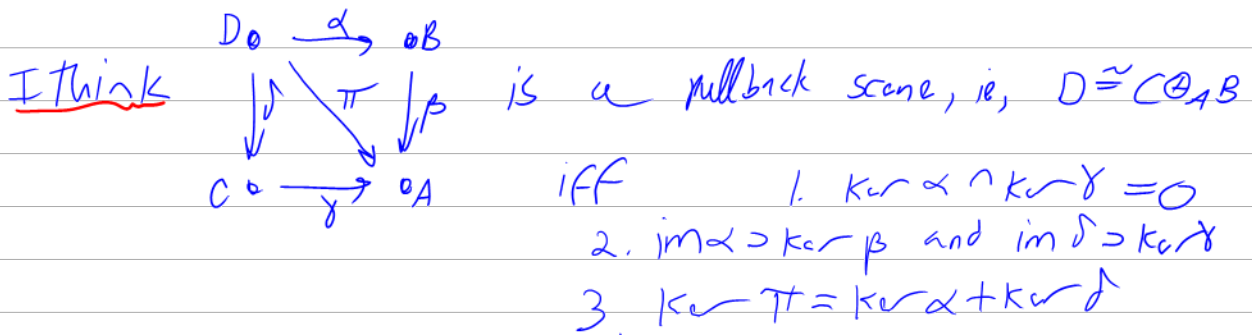 D α B
I think δ π β is a pullback scene, ie, D ≅ C⊕_A B
C γ A iff 1. ker α ∩ ker γ = 0
2. im α ⊃ ker β and im δ ⊃ ker γ
3 ker π = ker α + ker δ